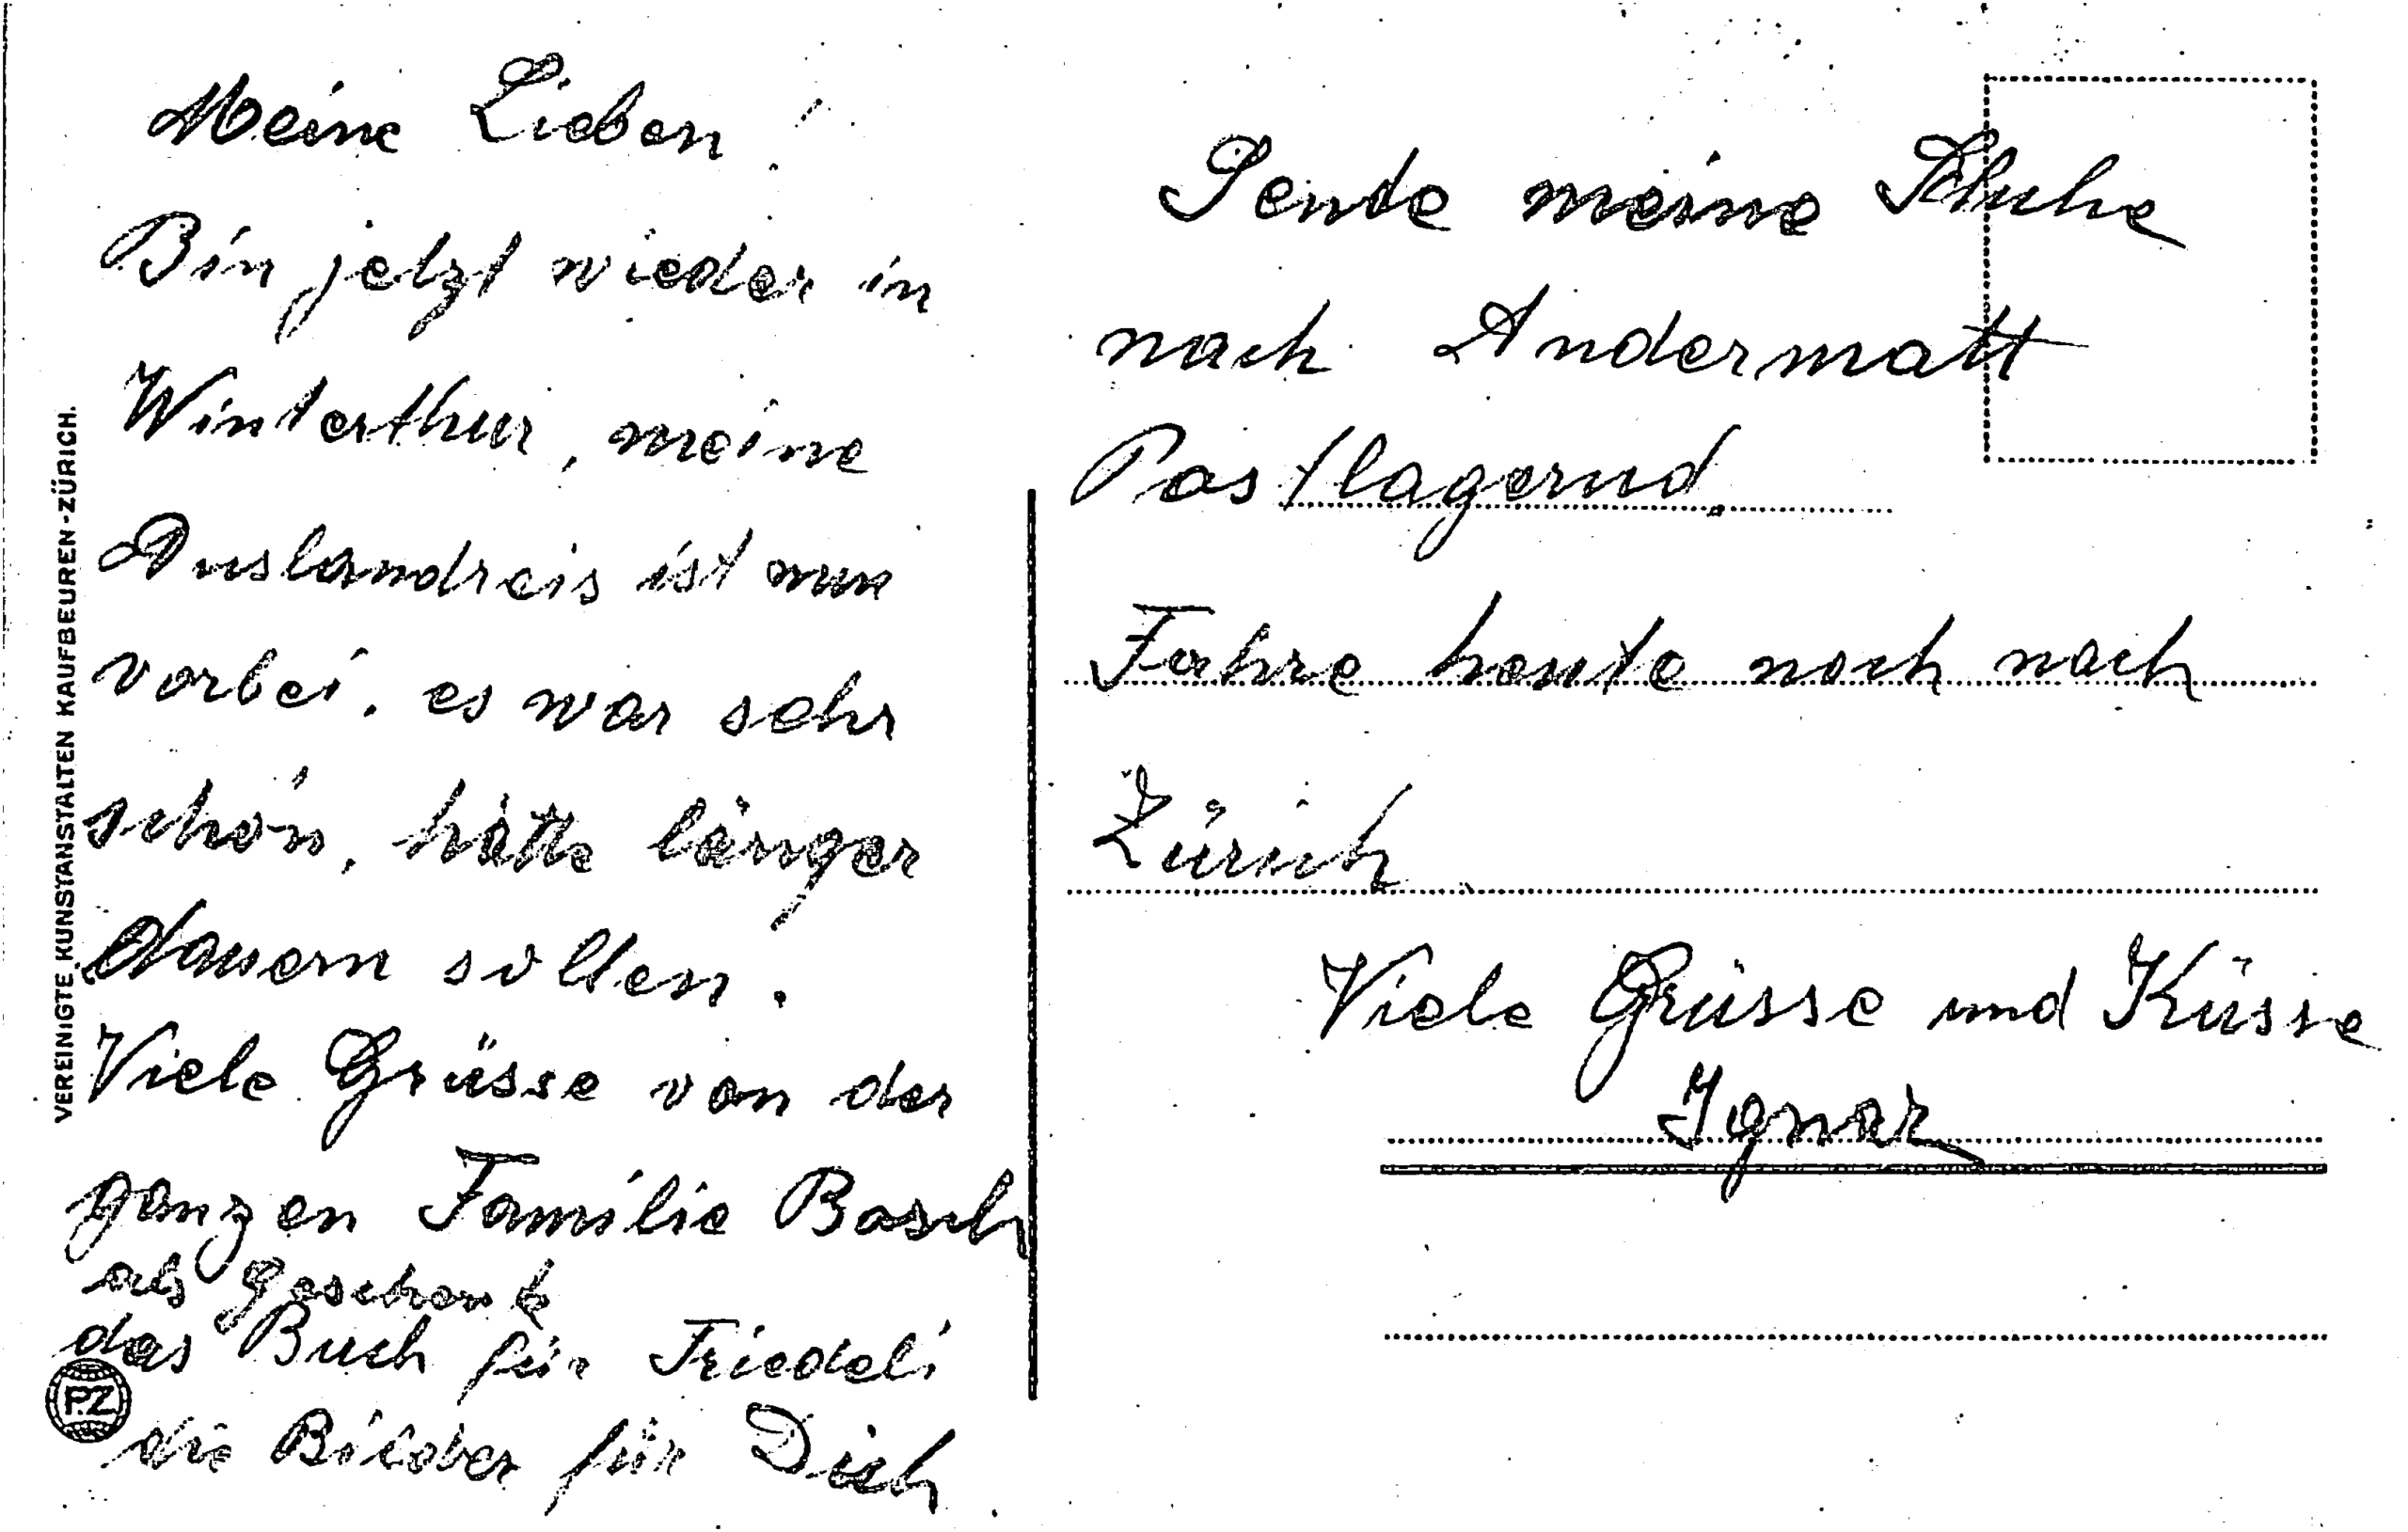 Meine Lieben!
Bin jetzt wieder in
Winterthur, meine
Auslandreis ist nun
vorbei. es war sehr
schön, hätte länger
dauern sollen.
Viele Grüsse von der
ganzen Familie Bosch
als Geschenk
das Buch für Friedeli
die Bilder für Dich
Sente meine Schuhe
nach Andermatt
Postlagernd.
Fahre heute noch nach
Zürich
Viele Grüsse und Küsse
Ignaz
VEREINIGTE KUNSTANSTALTEN KAUFBEUREN-ZÜRICH.
P.Z